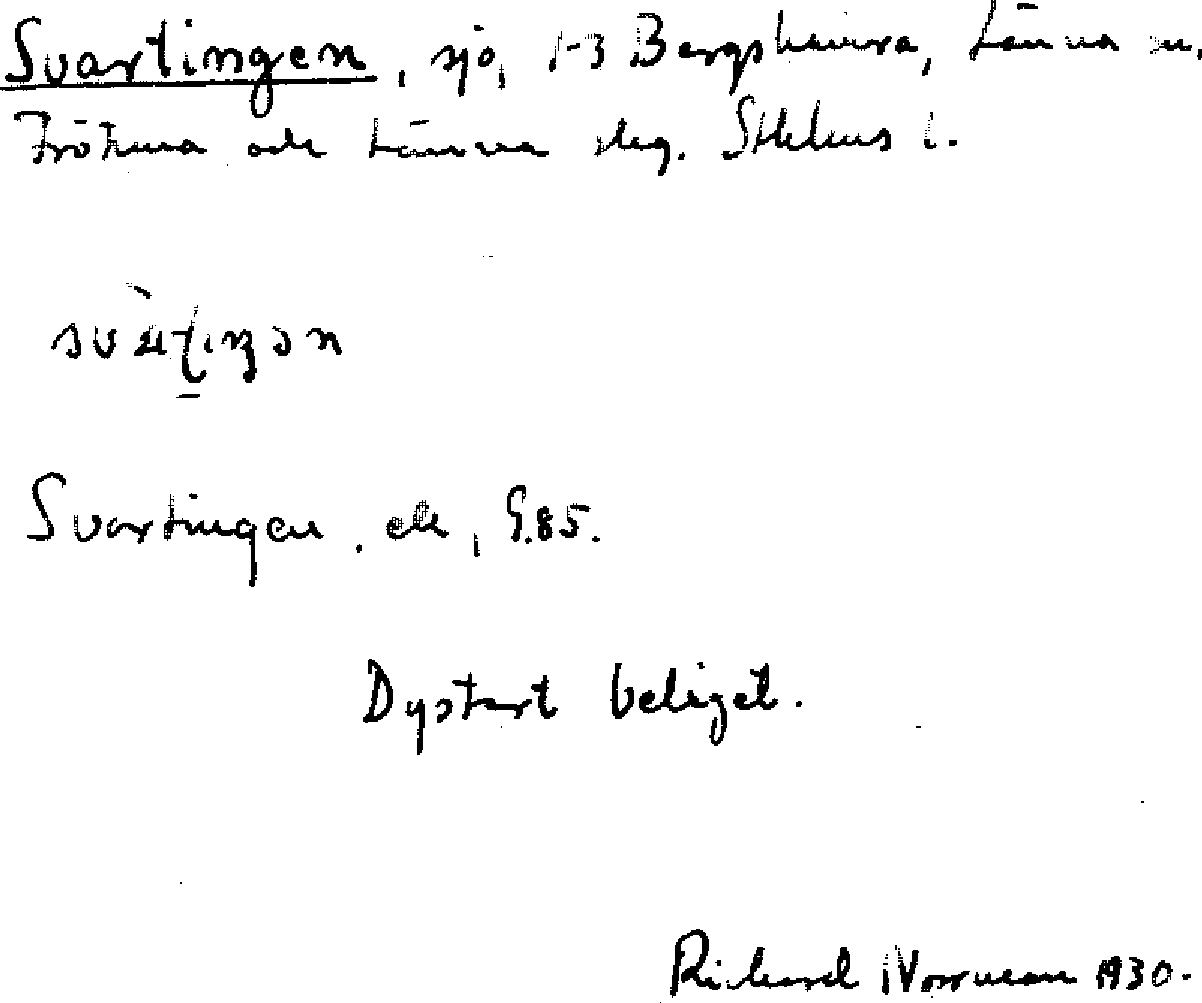 Svartingen, sjö, 1-3 Bergshamra, Länna sn.
Frötuna och Länna skg. Sthlms l.
Svartingen. ek, G.85.
Dystert beläget.
Rickard Norrman 1930.